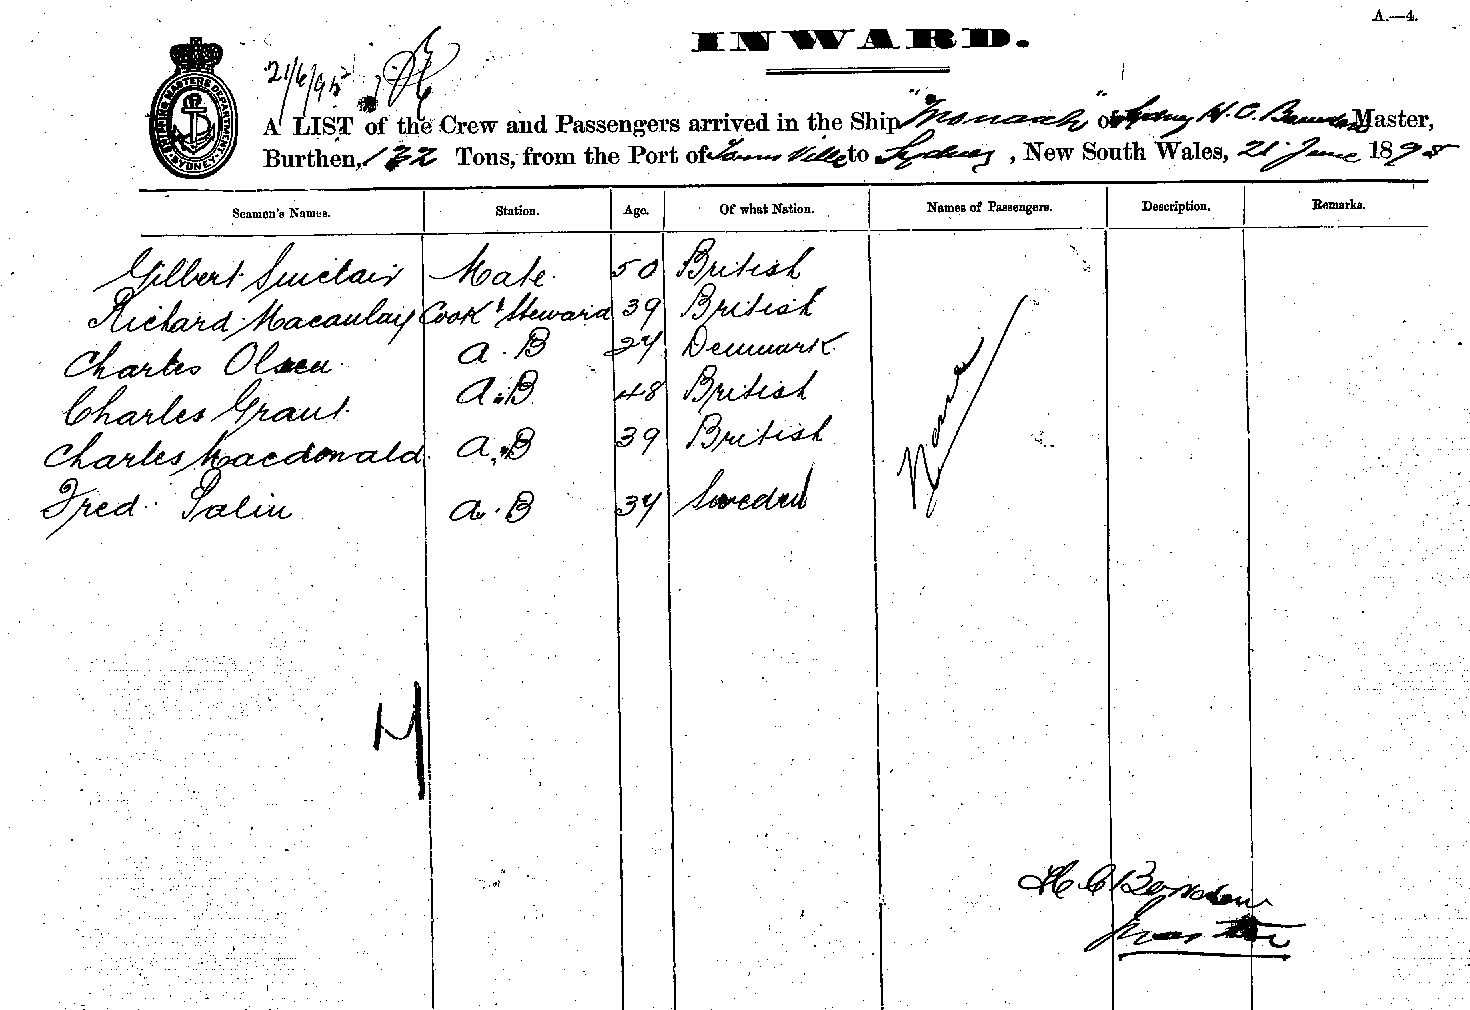 A.—4.
INWARD.
21/6/95
A LIST of the Crew and Passengers arrived in the Ship "Monarch" of Sydney H. C. Master,
Burthen, 132 Tons, from the Port of Towns Ville to Sydney, New South Wales, 21 June 1895
Seamen's Names. Station. Age. Of what Nation. Names of Passengers. Description. Remarks.
Gilbert Sinclair Mate 50 British
Richard Macaulay Cook & Steward 39 British
Charles Olsen A.B 27 Denmark
Charles Grant A.B 48 British
Charles Macdonald A.B 39 British
Fred Salin A.B 37 Sweden
None
H C
Master